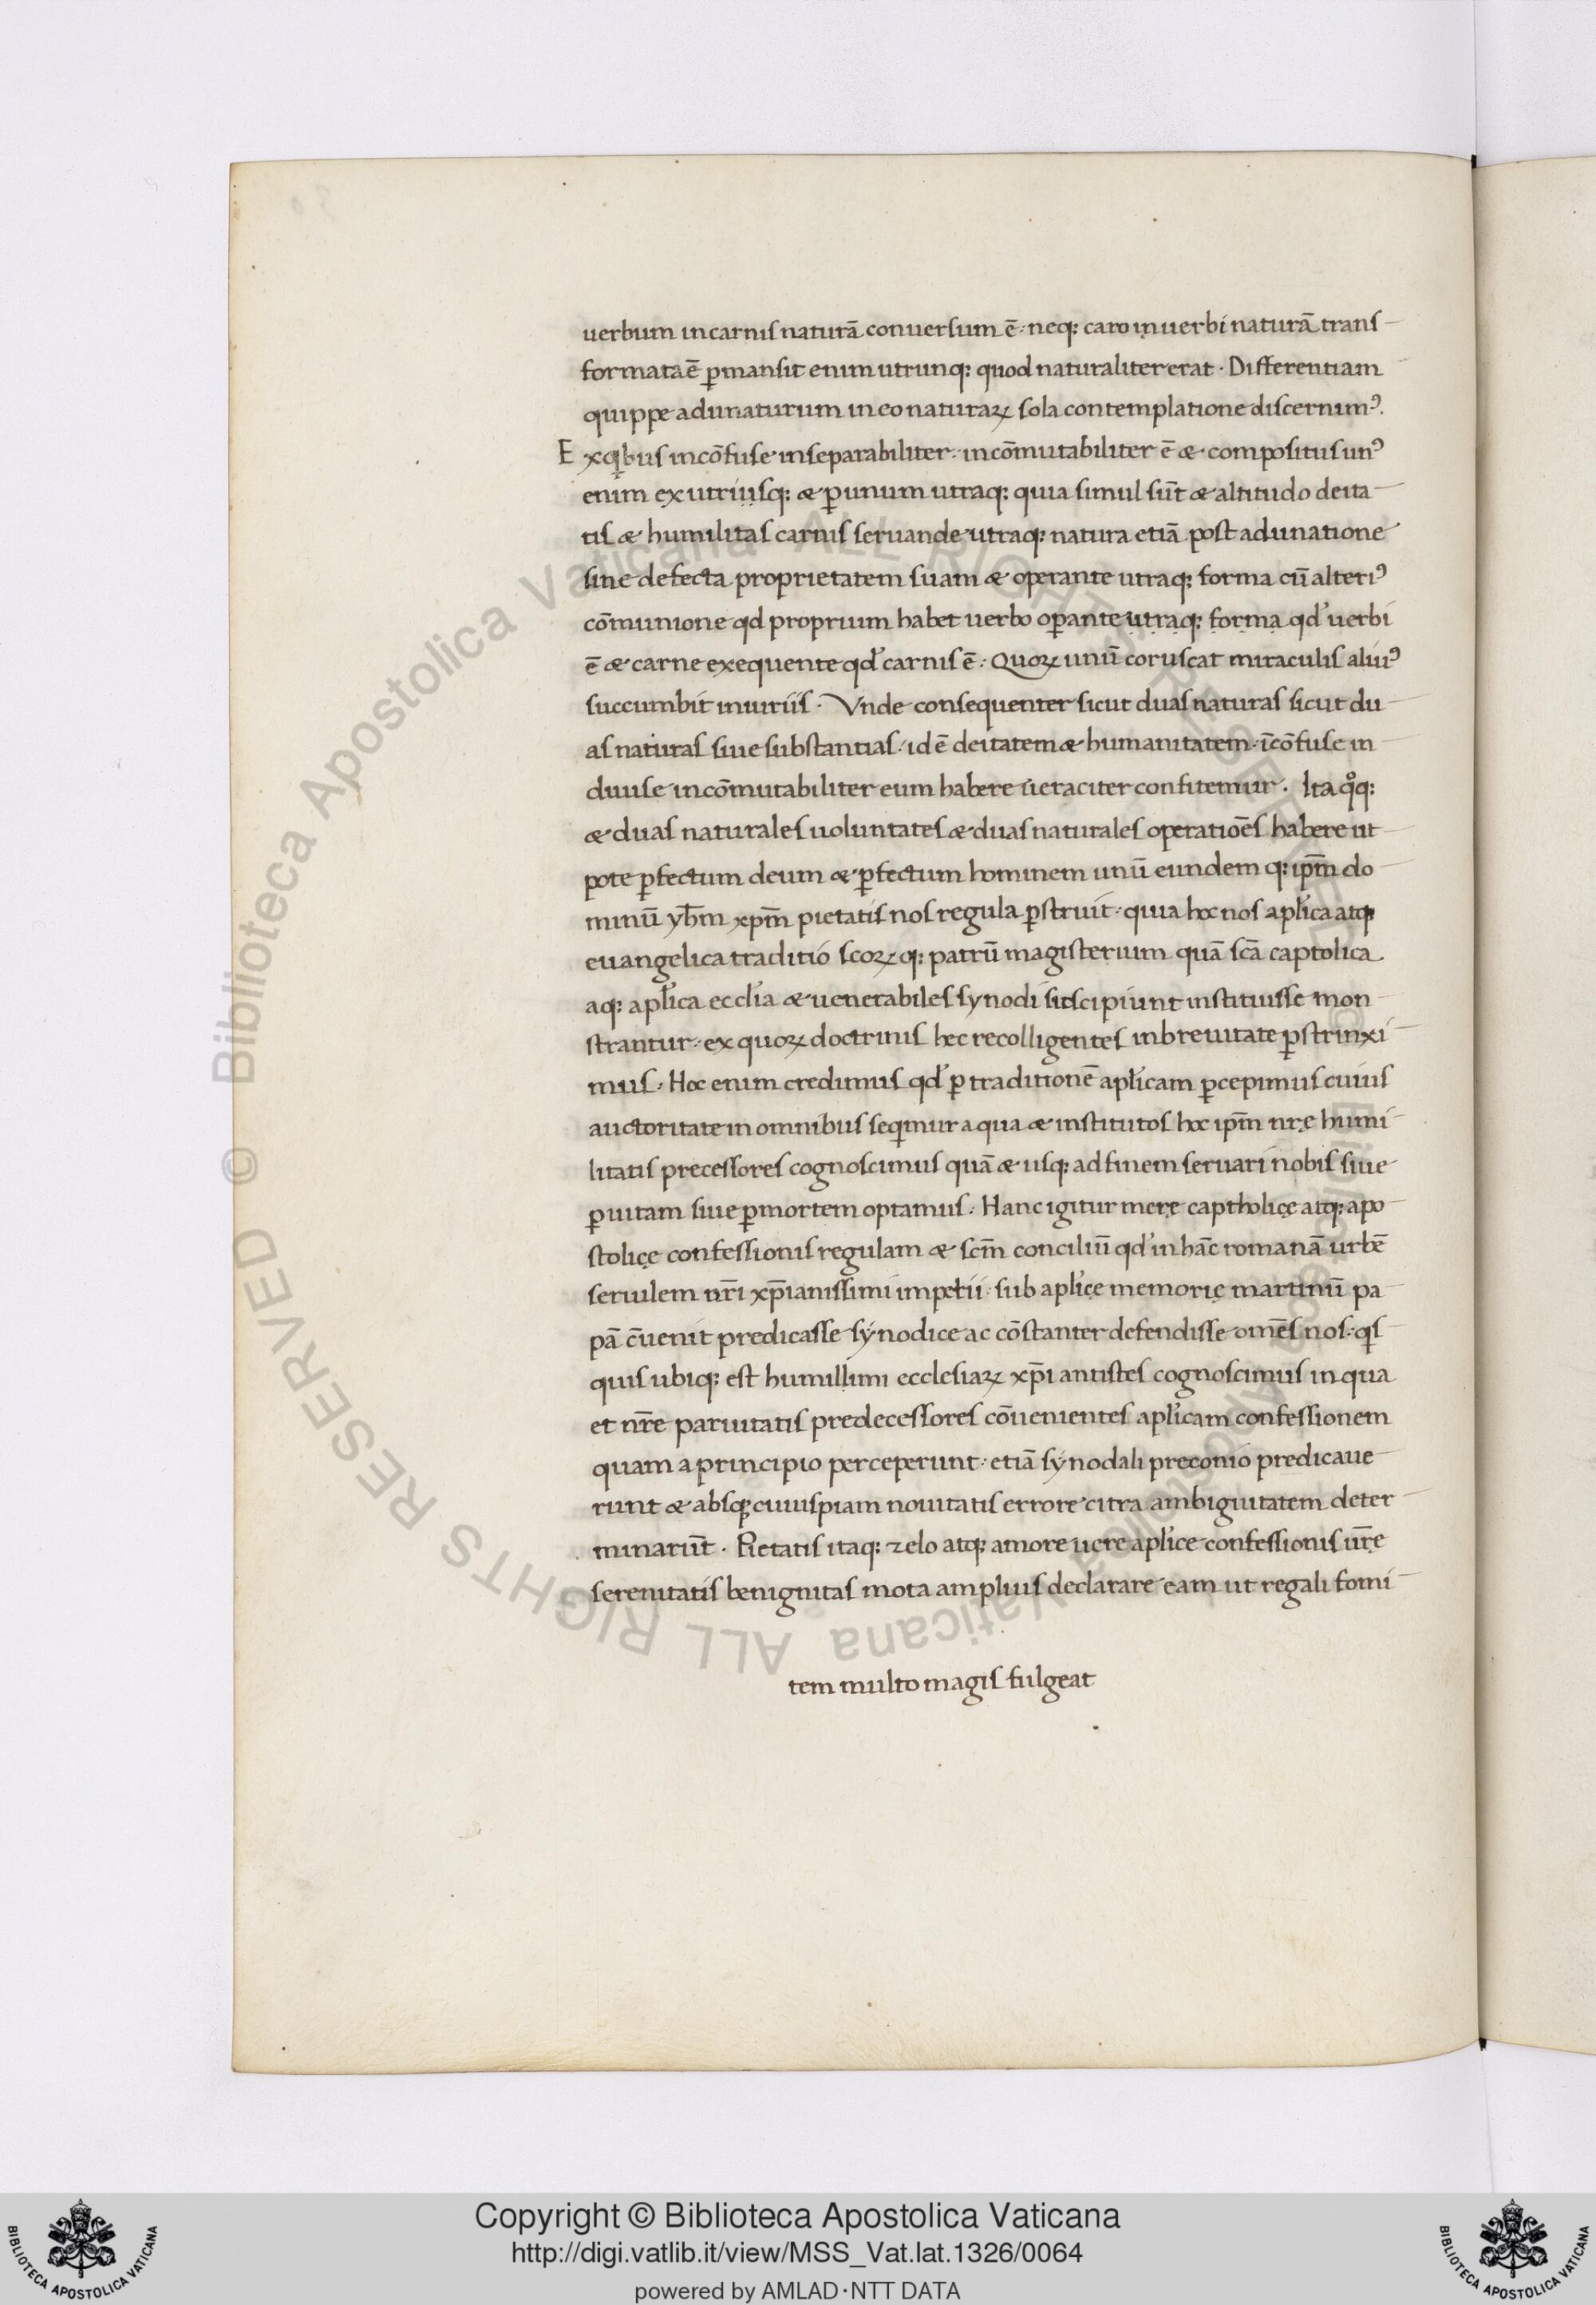 uerbum in carnis naturā conuersum ē· neq; caro in uerbi naturā trans
formata ē ꝑmansit enim utrunq; quod naturaliter erat · Differentiam
quippe adunaturum in eo naturaꝝ sola contemplatione discernimꝰ.
E xqibus incōfuse inseparabiliter · incōmutabiliter ē æ compositus unꝰ
enim ex utriusq; æ ꝑunum utraq; quia simul sūt æ altitudo deita
tis æ humilitas carnis seruande utraq; natura etiā post adunatione
sine defecta proprietatem suam æ operante utraq; forma cū alteriꝰ
cōmunione qd proprium habet uerbo oꝑante utraq; forma qd' uerbi
ē æ carne exequente qd' carnis ē · Quoꝝ unū coruscat miraculis aliuꝰ
succumbit iniuriis · Vnde consequenter sicut duas naturas sicut du
as naturas siue substantias · id ē deitatem æ humanitatem · īcōfuse in
diuise incōmutabiliter eum habere ueraciter confitemur · Ita qoq;
æ duas naturales uoluntates æ duas naturales operatiōes habere ut
pote ꝑfectum deum æ ꝑfectum hominem unū eundem q; ip̄m do
minū yh̄m xp̄m pietatis nos regula ꝑstruit · quia hoc nos apl'ica atq;
euangelica traditio scoꝝ q; patrū magisterium quā scā captolica
aq; apl'ica eccl'ia æ uenerabiles synodi suscipiunt instituisse mon
strantur · ex quoꝝ doctrinis hec recolligentes in breuitate ꝑstrinxi
mus · Hoc enim credimus qd' ꝑ traditionē apl'icam ꝑcepimus cuius
auctoritate in omnibus seqimur a qua æ institutos hoc ip̄m nrę humi
litatis precessores cognoscimus quā æ usq; ad finem seruari nobis siue
ꝑ uitam siue ꝑ mortem optamus · Hanc igitur merę captholicę atq; apo
stolicę confessionis regulam æ scm̄ conciliū qd' in hāc romanā urbē
seruilem nr̄i xp̄ianissimi impetii · sub apl'icę memorię martinū pa
pā c̄uenit predicasse synodice ac cōstanter defendisse omēs nos · qs
quis ubiq; est humillimi ecclesiaꝝ xp̄i antistes cognoscimus in qua
et nr̄e paruitatis predecessores cōuenientes apl'icam confessionem
quam a principio perceperunt · etiā synodali preconio predicaue
runt æ absq; cuiuspiam nouitatis errore citra ambiguitatem deter
minarūt · Pietatis itaq; zelo atq; amore uere apl'ice confessionis ur̄ę
serenitatis benignitas mota amplius declarare eam ut regali fomi
tem multo magis fulgeat
Copyright © Biblioteca Apostolica Vaticana
http://digi.vatlib.it/view/MSS_Vat.lat.1326/0064
powered by AMLAD·NTT DATA
BIBLIOTECA APOSTOLICA VATICANA
BIBLIOTECA APOSTOLICA VATICANA
© Biblioteca Apostolica Vaticana ALL RIGHTS RESERVED
© Biblioteca Apostolica Vaticana ALL RIGHTS RESERVED